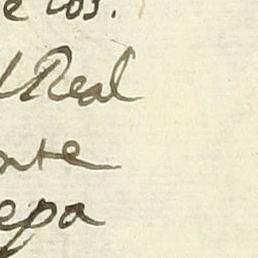 e los.
Real
nte
epa